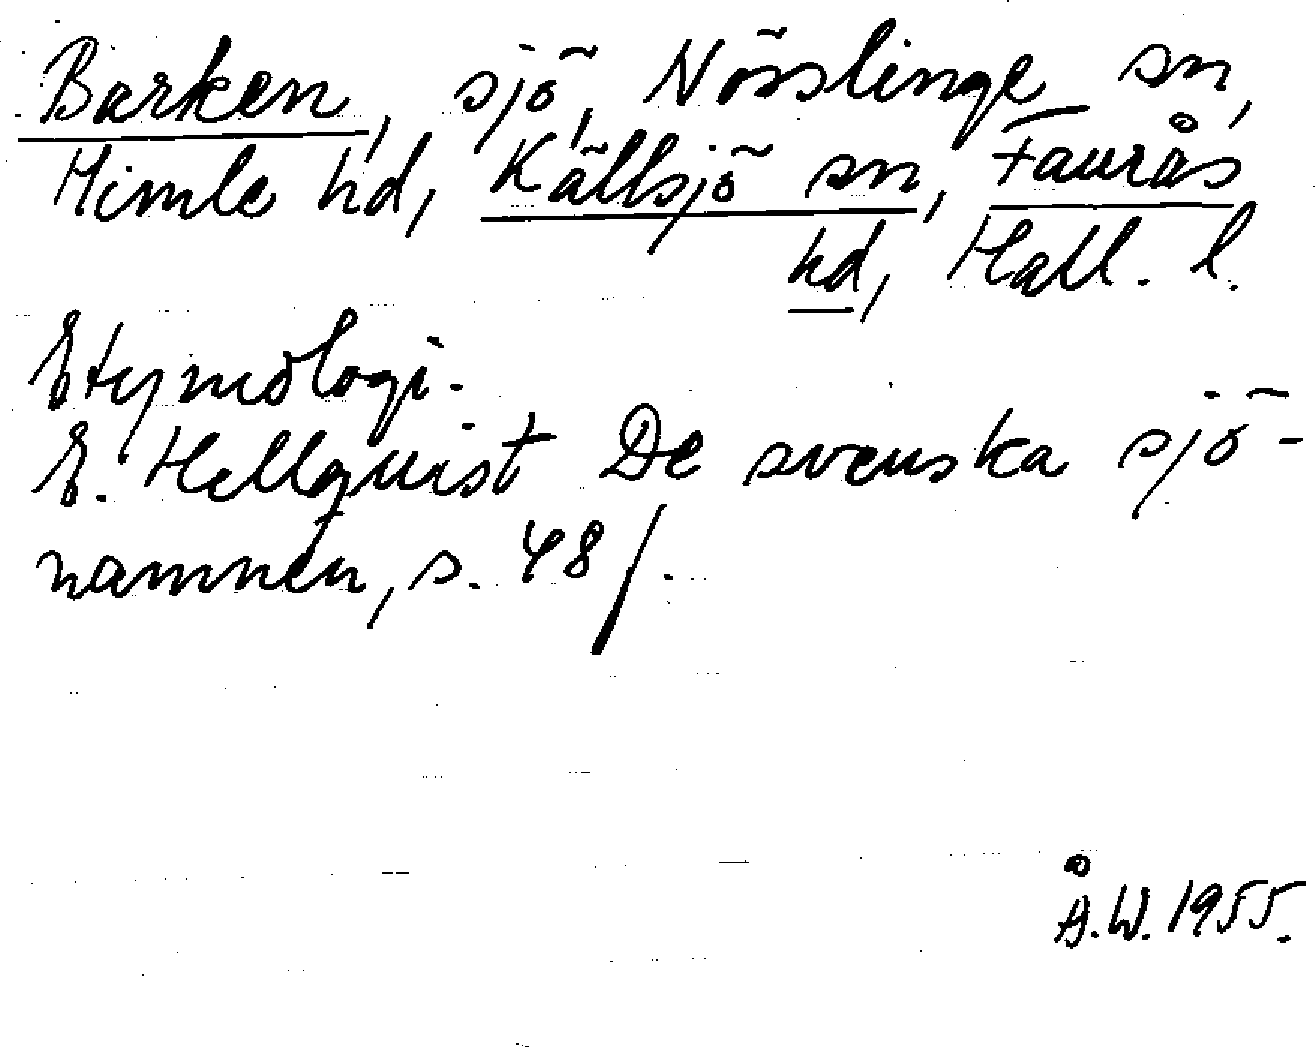 Barken, sjö, Nösslinge sn,
Himle hd, Källsjö sn, Faurås
hd, Hall. l.
Etymologi.
E. Hellquist De svenska sjö-
namnen, s. 48/.
Å.W. 1955.